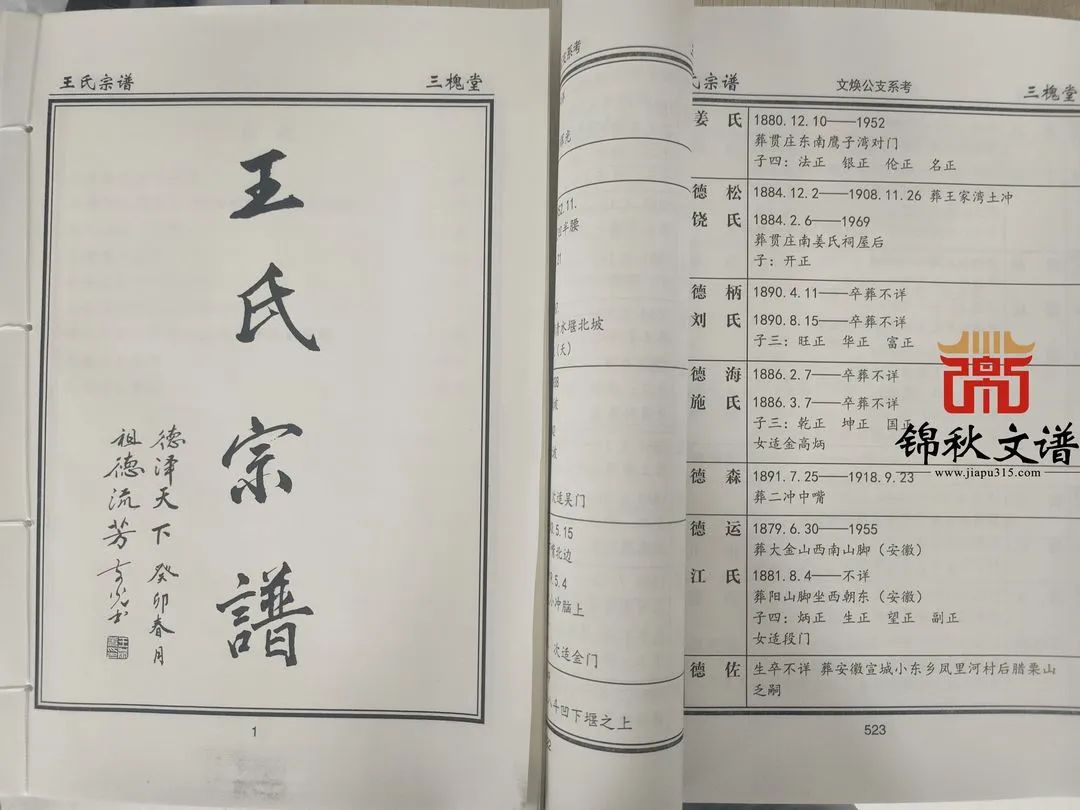 王氏宗谱
三槐堂
王氏宗譜
德泽天下 癸卯春月
祖德流芳
1
支系考
52.11.
半腰
水堰北坡
(天)
次适吴门
5.15
北边
5.4
冲脑上
次适金门
斗凹下堰之上
氏宗谱
文焕公支系考
三槐堂
姜氏 1880.12.10——1952
葬贯庄东南鹰子湾对门
子四：法正 银正 伦正 名正
德松 1884.12.2——1908.11.26 葬王家湾土冲
饶氏 1884.2.6——1969
葬贯庄南姜氏祠屋后
子：开正
德柄 1890.4.11——卒葬不详
刘氏 1890.8.15——卒葬不详
子三：旺正 华正 富正
德海 1886.2.7——卒葬不详
施氏 1886.3.7——卒葬不详
子三：乾正 坤正 国正
女适金高炳
德森 1891.7.25——1918.9.23
葬二冲中嘴
德运 1879.6.30——1955
葬大金山西南山脚（安徽）
江氏 1881.8.4——不详
葬阳山脚坐西朝东（安徽）
子四：炳正 生正 望正 副正
女适段门
德佐 生卒不详 葬安徽宣城小东乡凤里河村后腊栗山
乏嗣
523
锦秋文谱
www.jiapu315.com